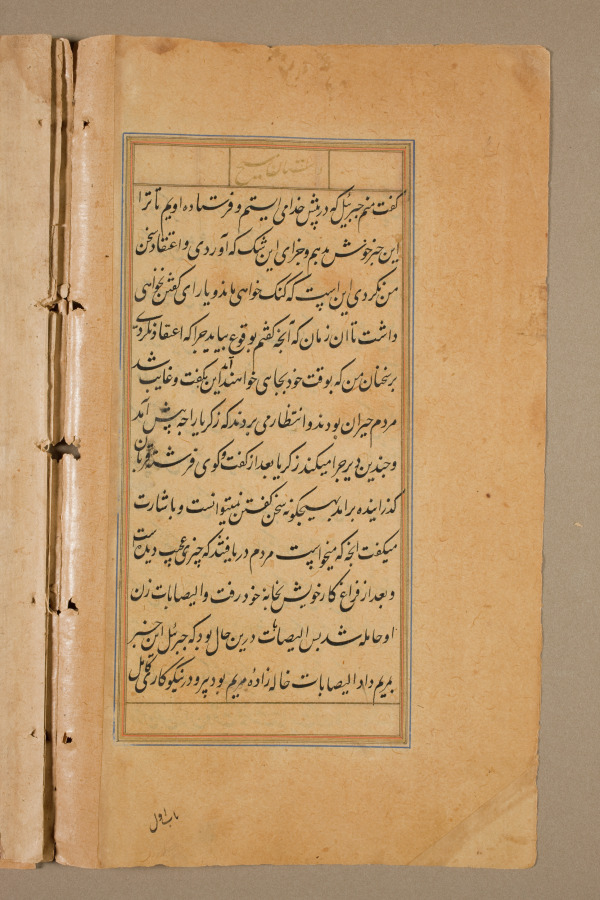 داستان مسیح
گفت منم جبرئیل که در پیش خدا می ایستم و فرستاده اویم تا ترا
این خبر خوش بدهم و جزای این شک که آوردی و اعتقاد سخن
من نکردی این است که گنگ خواهی ماند و یارای گفتن نخواهی
داشت تا آن زمان که آنچه گفتم بوقوع بیاید چرا که اعتقاد نکردی
بر سخنان من که بوقت خود بجای خواهند آمد این بگفت و غایب شد
مردم حیران بودند و انتظار می بردند که زکریا را چه پیش آمد
و چندین دیر چرا میکند زکریا بعد از گفت و گوی فرشته قربان
گذرانیده برآمد بهیچگونه سخن گفتن نمیتوانست و باشارت
میگفت آنچه که میخواست مردم دریافتند که چیزی عجب دیده است
و بعد از فراغ کار خویش بخانه خود رفت و الیصابات زن
او حامله شد پس الیصابات درین حال بود که جبرئیل این خبر
بمریم داد الیصابات خاله زاده مریم بود پرور در نیکوکاری کامل
باب اول